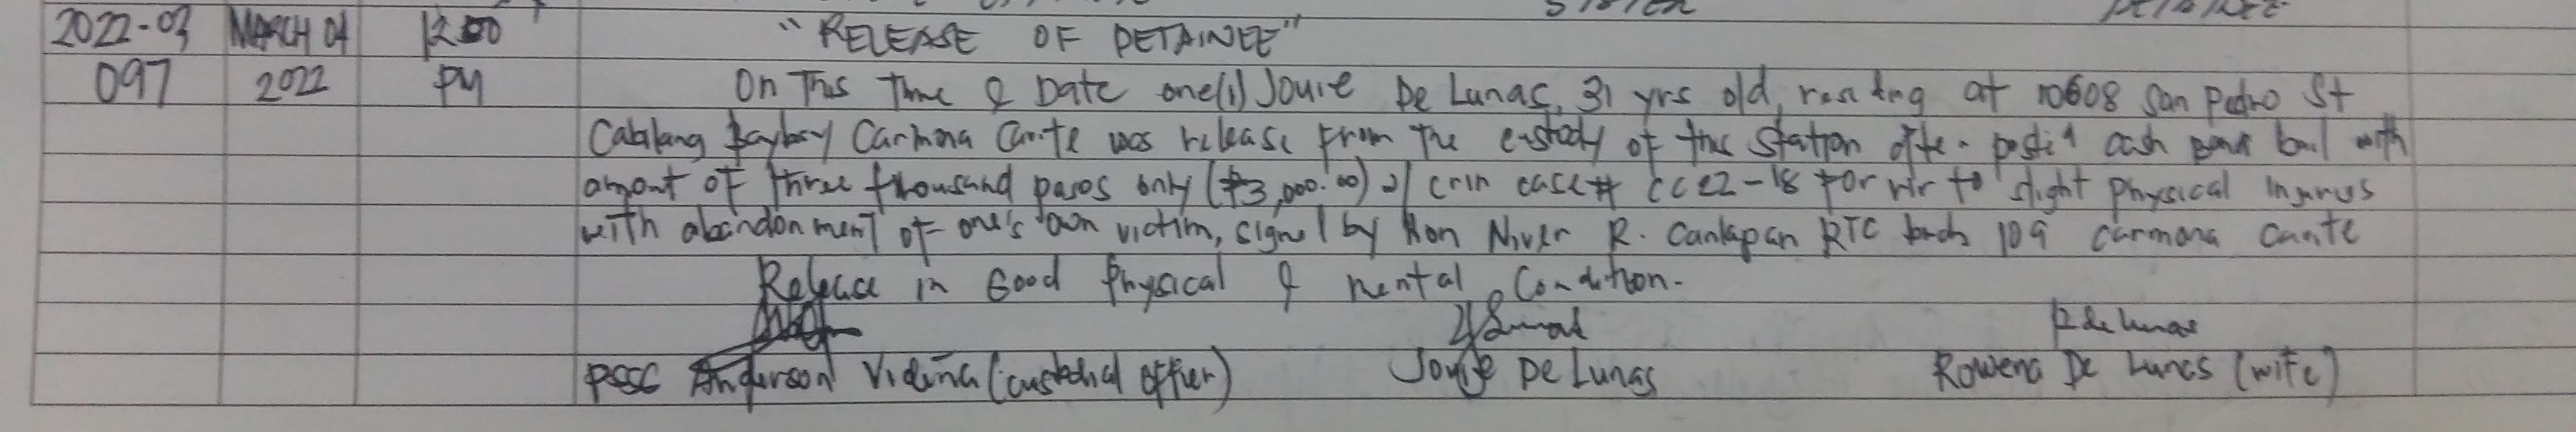 2022-03 MARCH 04 1200 "RELEASE OF DETAINEE"
097 2022 PM On This Time & Date one(1) Jouie De Lunas, 31 yrs old, residing at 10608 San Pedro St
Cabilang Baybay Carmona Cavite was release from the custody of this station after posted cash bond bail with
amount of three thousand pesos only (₱3,000.00) crim case# CC22-18 for rir to slight physical Injuries
with abandonment of one's own victim, signed by Hon R. RTC 109 Carmona Cavite
Release in Good Physical & mental Condition.
R de lunas
Anderson Videña (custodial officer) Jouie De Lunas Rowena De Lunas (wife)